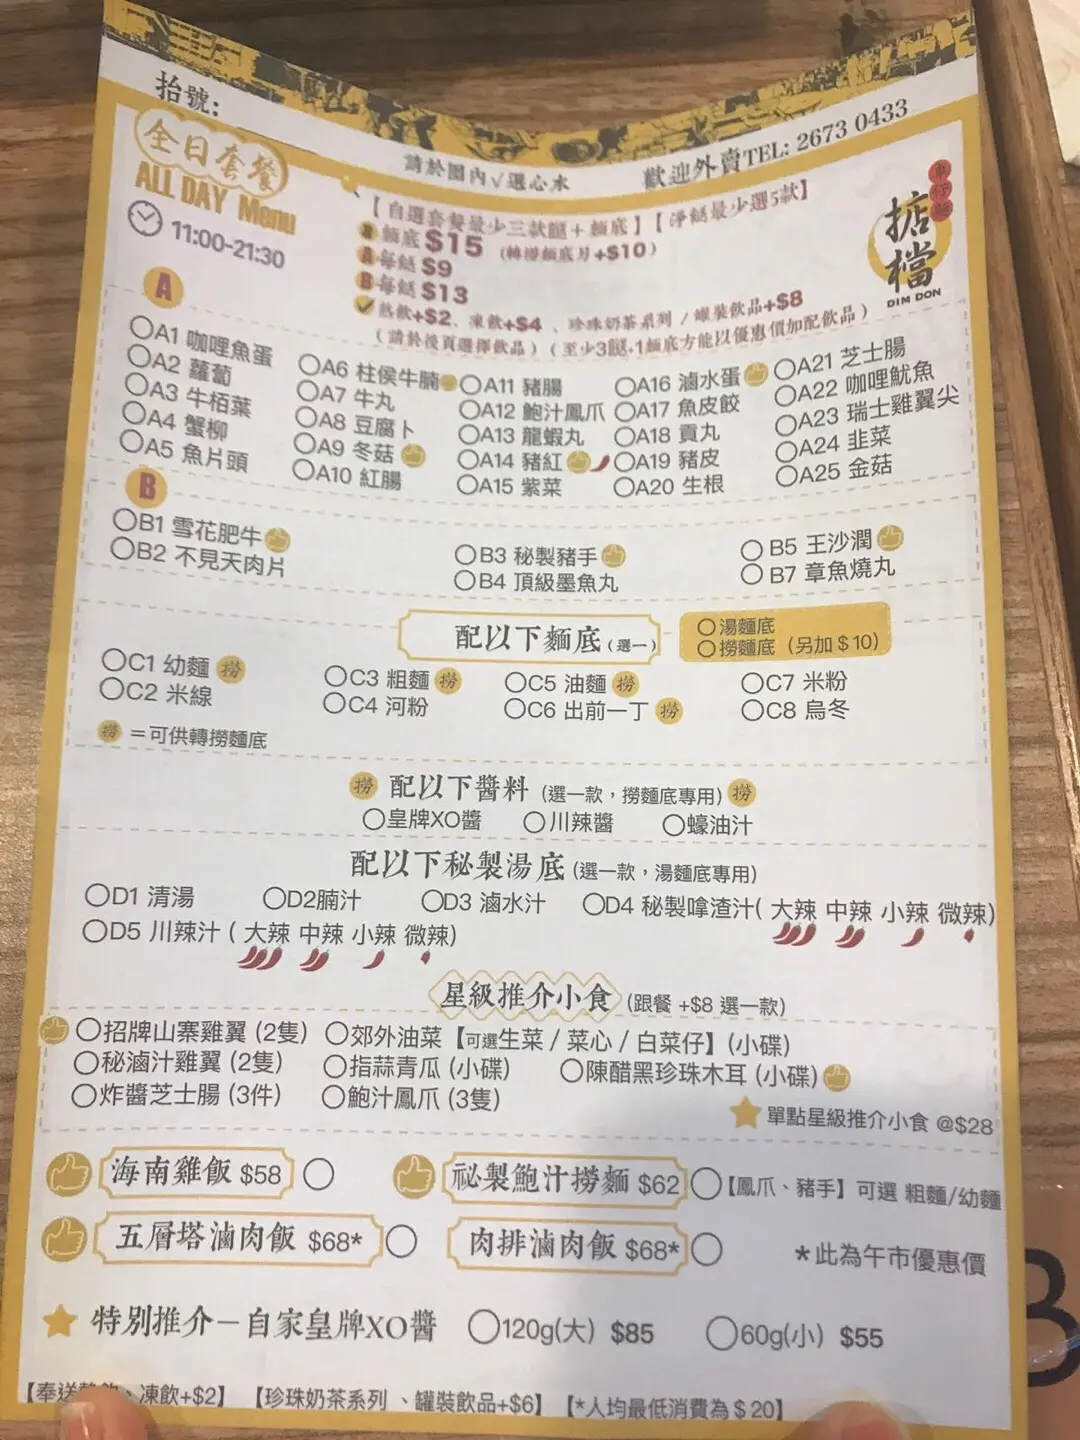 抬號:
請於圈內√選心水
歡迎外賣TEL: 2673 0433
全日套餐
ALL DAY Menu
11:00-21:30
【自選套餐最少三款餸+麵底】【淨餸最少選5款】
麵底 $15 (轉撈麵底另+$10)
A 每餸 $9
B 每餸 $13
熱飲+$2、凍飲+$4、珍珠奶茶系列 / 罐裝飲品+$8
(請於後頁選擇飲品) (至少3餸+1麵底方能以優惠價加配飲品)
車仔麵
掂檔
DIM DON
A
A1 咖哩魚蛋
A2 蘿蔔
A3 牛栢葉
A4 蟹柳
A5 魚片頭
A6 柱侯牛腩
A7 牛丸
A8 豆腐卜
A9 冬菇
A10 紅腸
A11 豬腸
A12 鮑汁鳳爪
A13 龍蝦丸
A14 豬紅
A15 紫菜
A16 滷水蛋
A17 魚皮餃
A18 貢丸
A19 豬皮
A20 生根
A21 芝士腸
A22 咖哩魷魚
A23 瑞士雞翼尖
A24 韭菜
A25 金菇
B
B1 雪花肥牛
B2 不見天肉片
B3 秘製豬手
B4 頂級墨魚丸
B5 王沙潤
B7 章魚燒丸
配以下麵底(選一)
湯麵底
撈麵底 (另加$10)
C1 幼麵 撈
C2 米線
C3 粗麵 撈
C4 河粉
C5 油麵 撈
C6 出前一丁 撈
C7 米粉
C8 烏冬
撈 =可供轉撈麵底
撈 配以下醬料 (選一款,撈麵底專用) 撈
皇牌XO醬 川辣醬 蠔油汁
配以下秘製湯底 (選一款,湯麵底專用)
D1 清湯 D2腩汁 D3 滷水汁 D4 秘製嗱渣汁( 大辣 中辣 小辣 微辣)
D5 川辣汁 ( 大辣 中辣 小辣 微辣)
星級推介小食 (跟餐 +$8 選一款)
招牌山寨雞翼 (2隻) 郊外油菜【可選生菜 / 菜心 / 白菜仔】(小碟)
秘滷汁雞翼 (2隻) 指蒜青瓜 (小碟) 陳醋黑珍珠木耳 (小碟)
炸醬芝士腸 (3件) 鮑汁鳳爪 (3隻)
單點星級推介小食 @$28
海南雞飯 $58 祕製鮑汁撈麵 $62 【鳳爪、豬手】可選 粗麵/幼麵
五層塔滷肉飯 $68* 肉排滷肉飯 $68* *此為午市優惠價
特別推介－自家皇牌XO醬 120g(大) $85 60g(小) $55
【奉送熱飲、凍飲+$2】 【珍珠奶茶系列 、罐裝飲品+$6】 【*人均最低消費為$20】